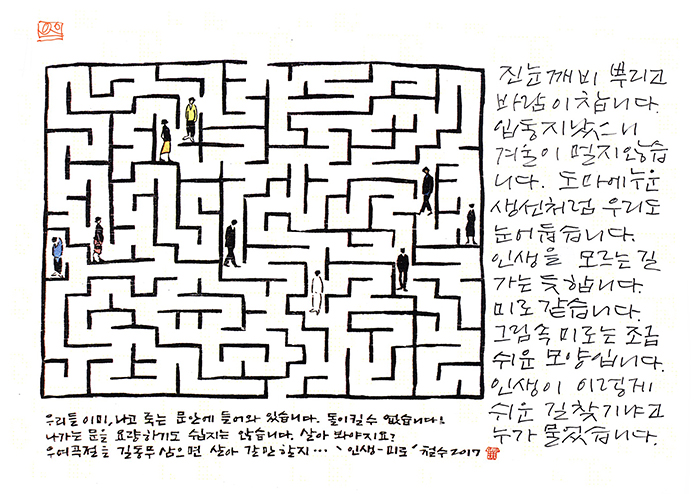 진눈깨비 뿌리고
바람이 찹니다.
입동지났으니
겨울이 멀지 않습
니다. 도마에 누운
생선처럼 우리도
눈어둡습니다.
인생을 모르는 길
가는 듯합니다.
미로 같습니다.
그림 속 미로는 조금
쉬운 모양입니다.
인생이 이렇게
쉬운 길찾기냐고
누가 물었습니다.
우리들 이미, 나고 죽는 문안에 들어와 있습니다. 돌이킬 수 없습니다!
나가는 문을 요량하기도 쉽지는 않습니다. 살아 봐야지요?
우여곡절을 길동무 삼으면 살아 갈만 할지… '인생-미로' 철수 2017